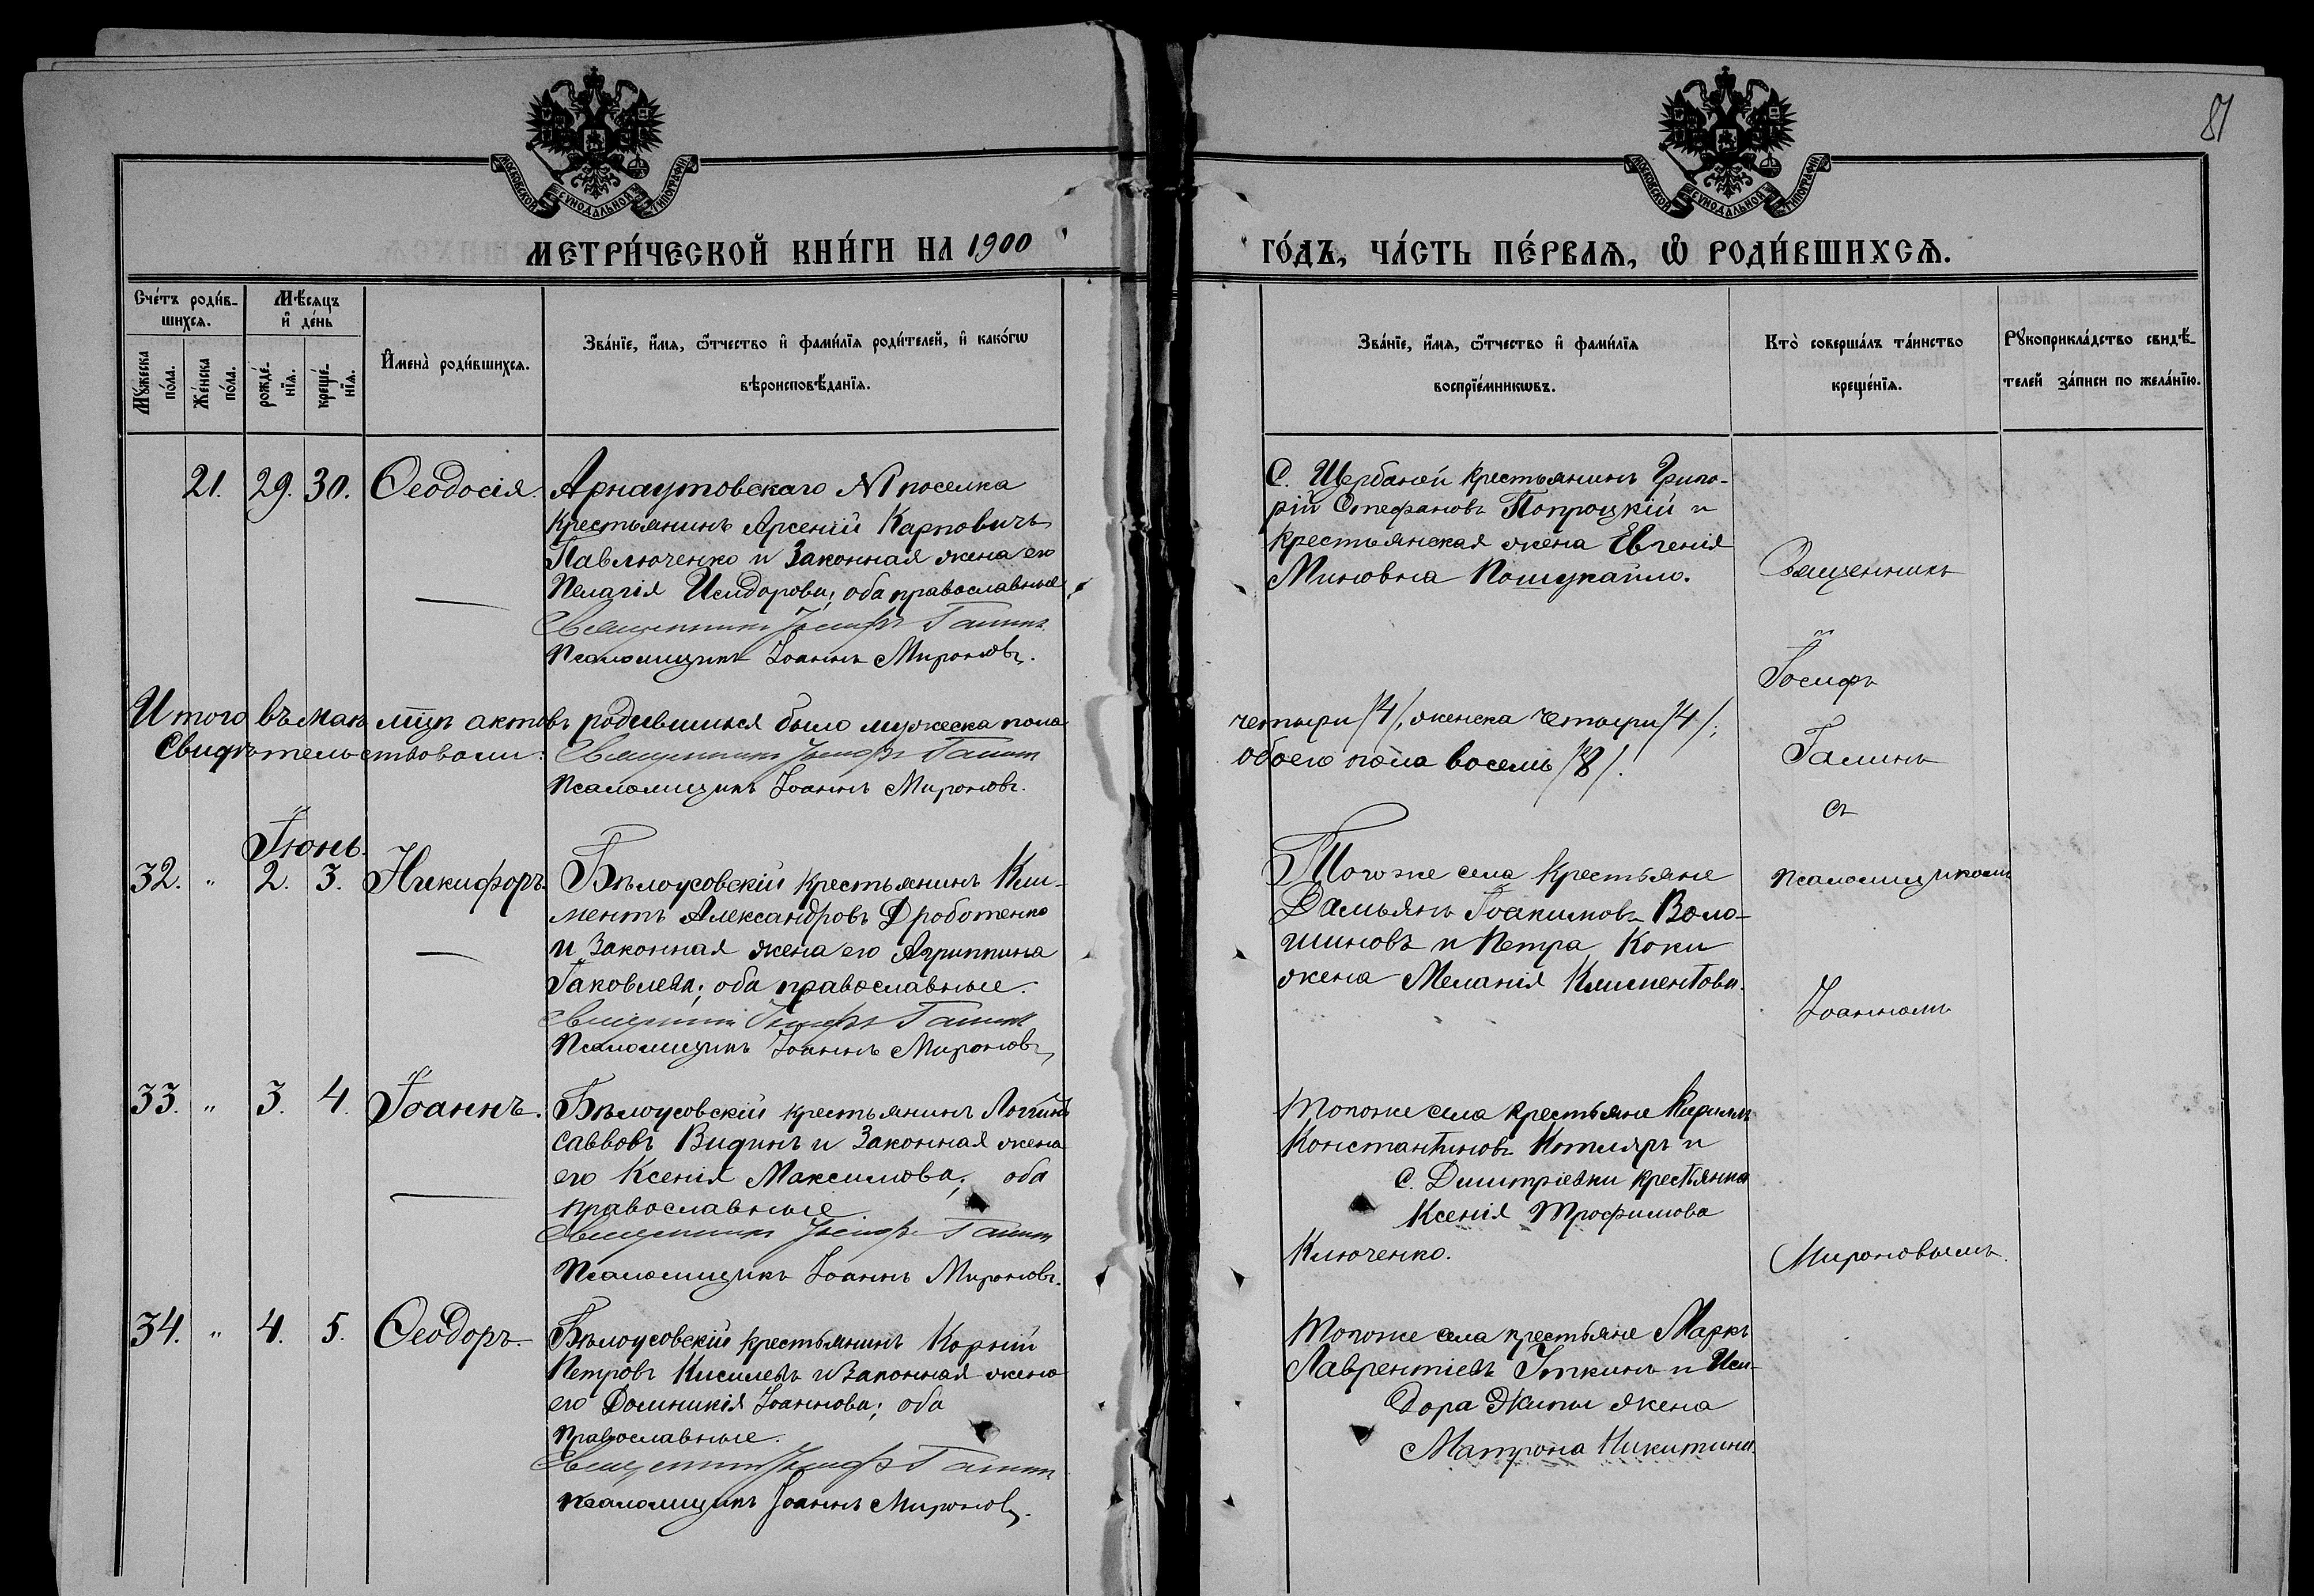 81
МОСКОВСКОЙ СѴНОДАЛЬНОЙ ТИПОГРАФІИ
МОСКОВСКОЙ СѴНОДАЛЬНОЙ ТИПОГРАФІИ
МЕТРИ́ЧЕСКОЙ КНИ́ГИ НА 1900
ГО́ДЪ, ЧА́СТЬ ПЕ́РВАѦ, Ѡ҆ РОДИ́ВШИХСѦ.
Сче́тъ роди́в-
шихсѧ.
Мꙋ́жеска по́ла.
Же́нска по́ла.
Мѣ́сѧцъ
и҆ де́нь
рожде́-нїѧ.
креще́-нїѧ.
И҆мена̀ роди́вшихсѧ.
Зва́нїе, и҆́мѧ, ѻ҆́тчество и҆ фами́лїѧ роди́телей, и҆ како́гѡ
вѣроисповѣ́данїѧ.
Зва́нїе, и҆́мѧ, ѻ҆́тчество и҆ фами́лїѧ
воспрїе́мникѡвъ.
Кто̀ соверша́лъ та́инство
креще́нїѧ.
Рꙋкоприкла́дство свидѣ́-
телей за́писи по жела́нїю.
21. 29. 30. Ѳеодосія.
Арнаутовскаго № поселка
крестьянинъ Арсеній Карповичъ
Павлюченко и законная жена его
Пелагія Исидорова; оба православные
Священникъ Іосифъ Галинъ
Псаломщикъ Іоаннъ Мироновъ.
С. Щербаней крестьянинъ Григо-
рій Стефановъ Попроцкій и
крестьянская жена Евгенія
Миновна Пошукайло.
Священникъ
Іосифъ
Галинъ
съ
псаломщикомъ
Іоанномъ
Мироновымъ.
Итого въ маѣ мцѣ актовъ родившихся было мужеска пола
четыри /4/, женска четыри /4/;
Свидѣтельствовали: Священникъ Іосифъ Галинъ
обоего пола восемь /8/.
Псаломщикъ Іоаннъ Мироновъ.
Іюнь.
32. " 2. 3. Никифоръ.
Бѣлоусовскій крестьянинъ Кли-
ментъ Александровъ Дроботенко
и законная жена его Агриппина
Іаковлева; оба православные.
Священникъ Іосифъ Галинъ
Псаломщикъ Іоаннъ Мироновъ,
Тогоже села крестьяне
Дамьянъ Іоакимовъ Воло-
шиновъ и Петра Коки
жена Меланія Климентова.
33. " 3. 4. Іоаннъ.
Бѣлоусовскій крестьянинъ Логгинъ
Савовъ Видинъ и законная жена
его Ксенія Максимова; оба
православные
Священникъ Іосифъ Галинъ
Псаломщикъ Іоаннъ Мироновъ.
Тогоже села крестьяне Кириллъ
Константиновъ Котляръ и
с. Димитріевки крестьянка
Ксенія Трофимова
Ключенко.
34. " 4. 5. Ѳеодоръ.
Бѣлоусовскій крестьянинъ Корній
Петровъ Киселевъ и законная жена
его Домникія Іоаннова; оба
православные.
Священникъ Іосифъ Галинъ
Псаломщикъ Іоаннъ Мироновъ.
Тогоже села крестьяне Маркъ
Лаврентіевъ и Иси-
дора жена
Матрона Никитина.